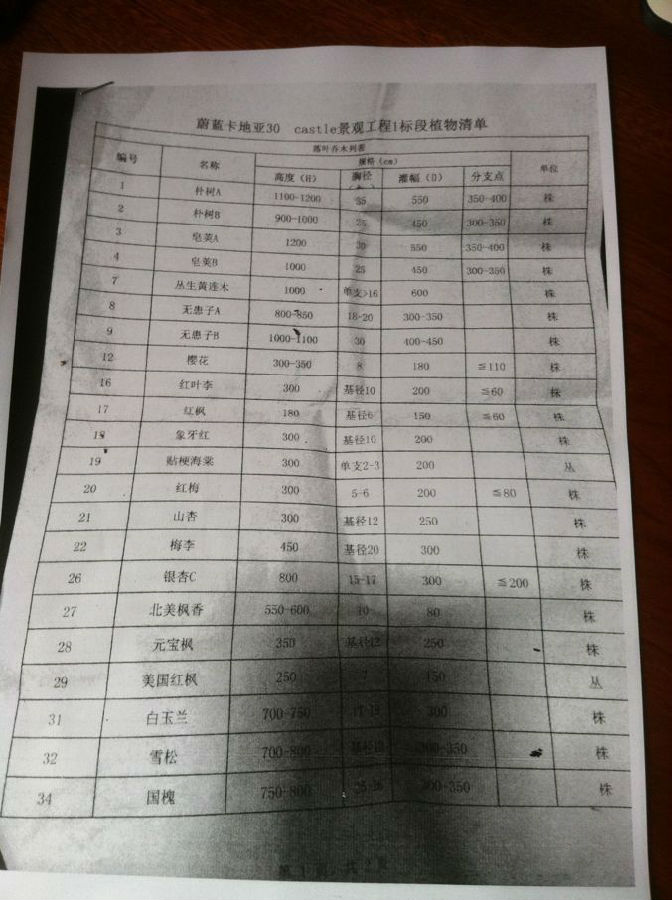 蔚蓝卡地亚30 castle景观工程1标段植物清单
落叶乔木列表
编号 名称 规格(cm) 单位
高度(H) 胸径 灌幅(D) 分支点
1 朴树A 1100-1200 35 550 350-400 株
2 朴树B 900-1000 25 450 300-350 株
3 皂荚A 1200 30 550 350-400 株
4 皂荚B 1000 25 450 300-350 株
7 丛生黄连木 1000 单支>16 600 株
8 无患子A 800-850 18-20 300-350 株
9 无患子B 1000-1100 30 400-450 株
12 樱花 300-350 8 180 ≦110 株
16 红叶李 300 基径10 200 ≦60 株
17 红枫 180 基径6 150 ≦60 株
18 象牙红 300 基径10 200 株
19 贴梗海棠 300 单支2-3 200 丛
20 红梅 300 5-6 200 ≦80 株
21 山杏 300 基径12 250 株
22 梅李 450 基径20 300 株
26 银杏C 800 15-17 300 ≦200 株
27 北美枫香 550-600 10 80 株
28 元宝枫 350 基径12 250 株
29 美国红枫 250 7 150 丛
31 白玉兰 700-750 300 株
32 雪松 700-800 300-350 株
34 国槐 750-800 300-350 株
第1页，共2页